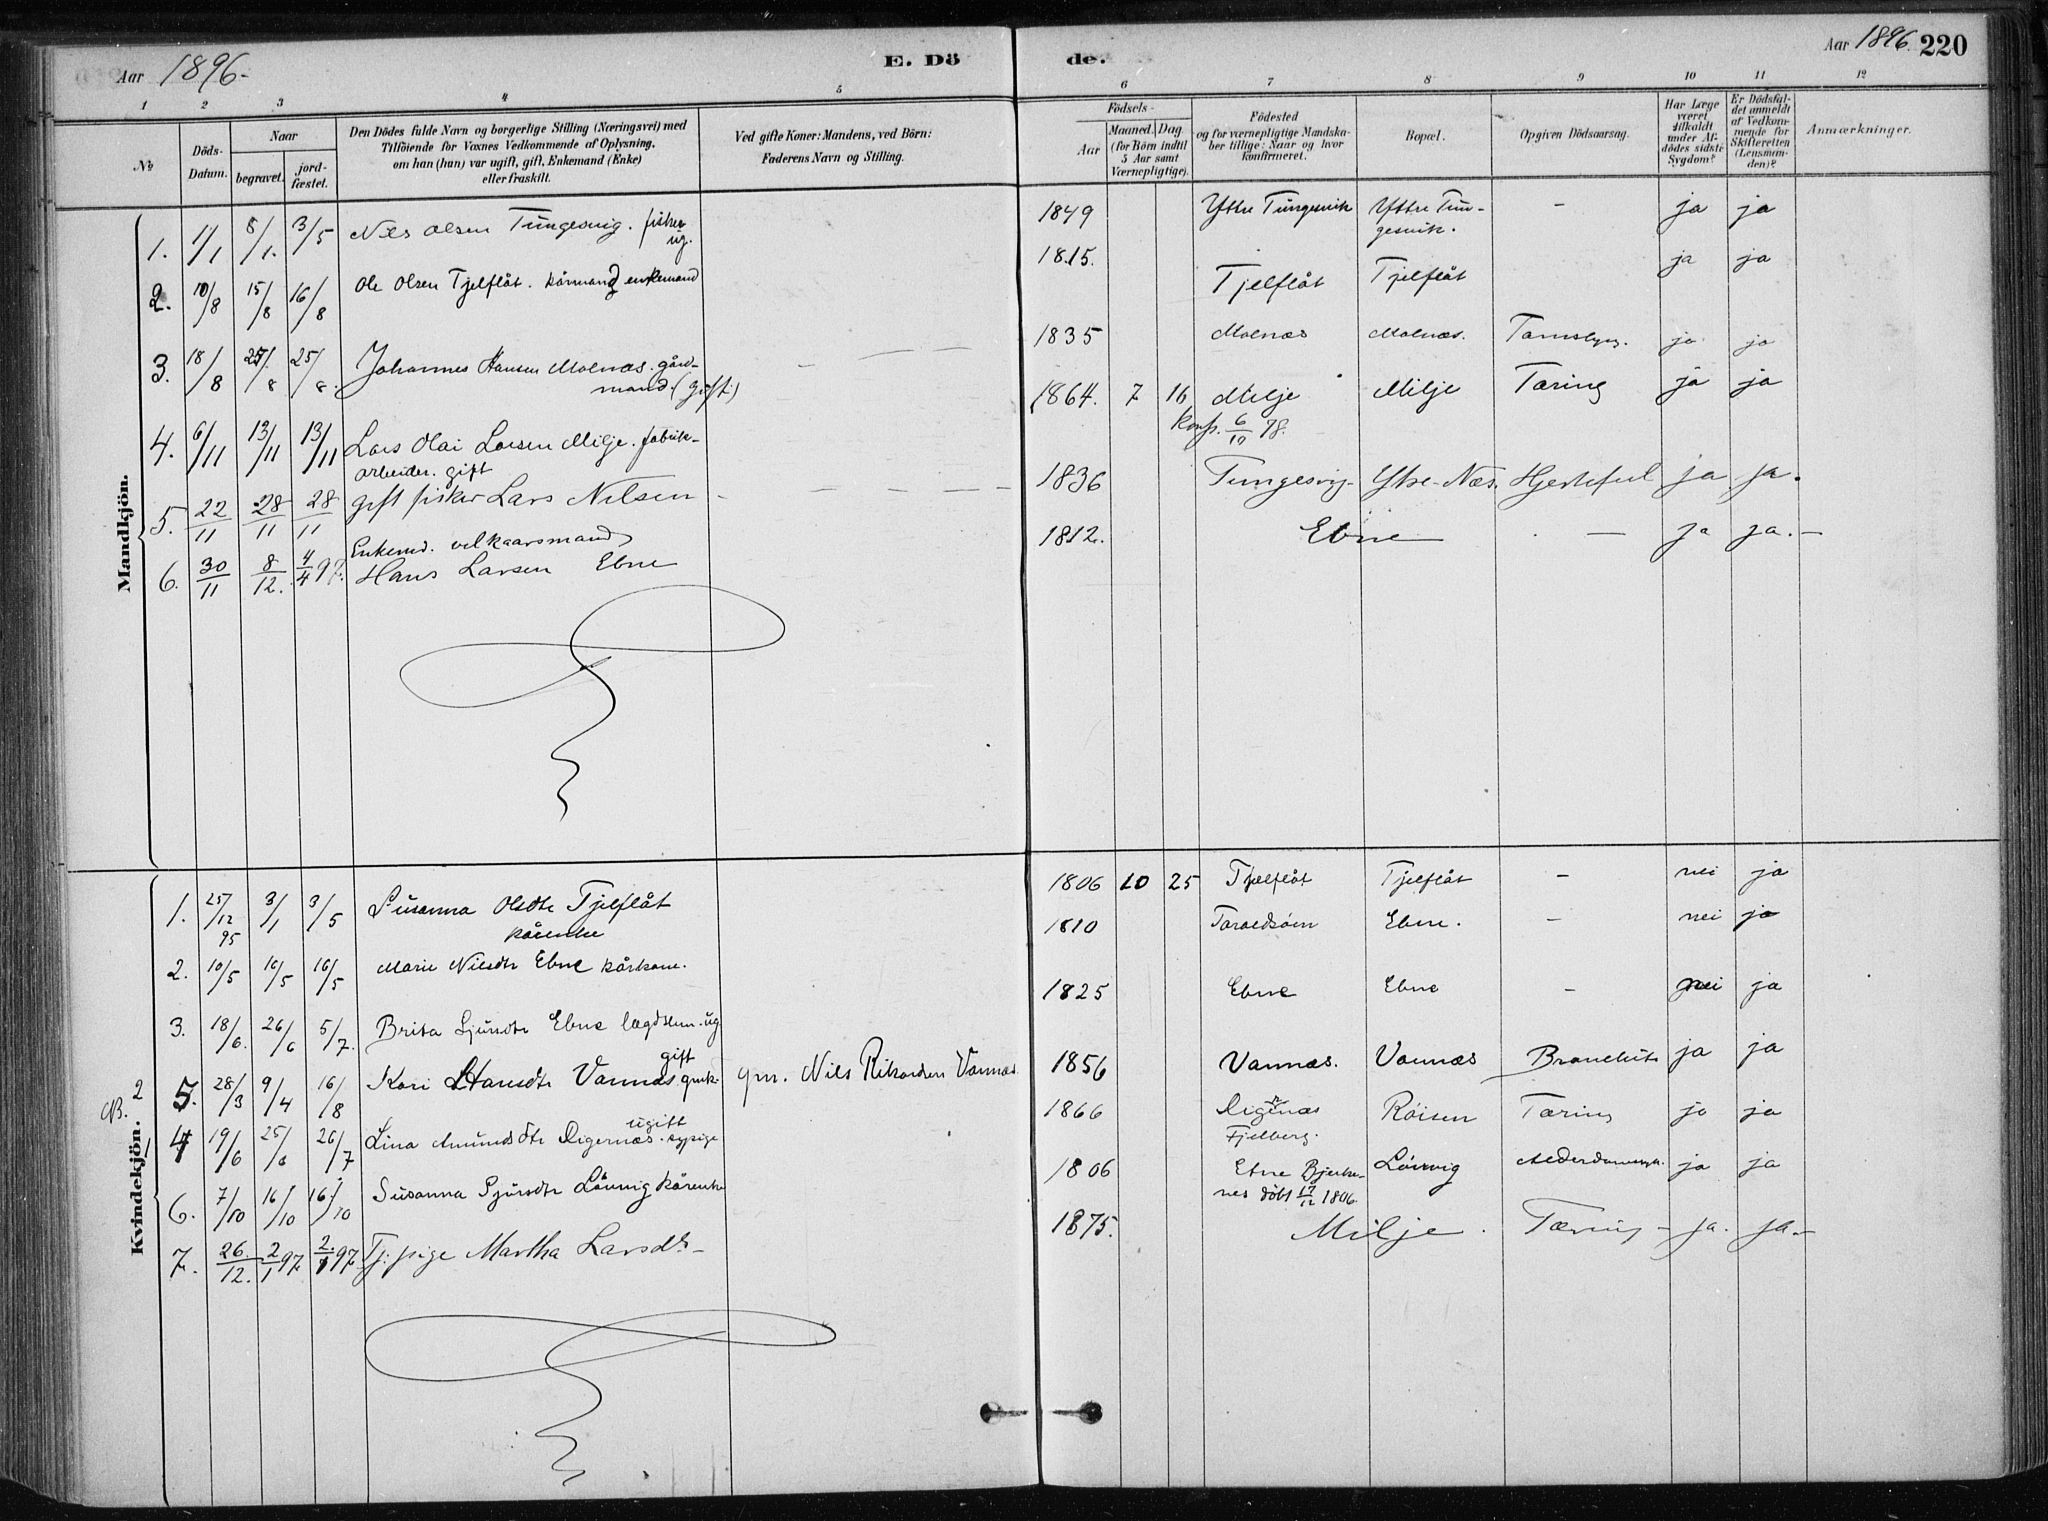 Aar 1896.
E. Dö
de.
Aar 1896. 220
1 2 3 4 5 6 7 8 9 10 11 12
No
Döds-
Datum.
Naar
begravet.
jord-
fæstet.
Den Dödes fulde Navn og borgerlige Stilling (Næringsvei) med
Tilföiende for Voxnes Vedkommende af Oplysning,
om han (hun) var ugift, gift, Enkemand (Enke)
eller fraskilt.
Ved gifte Koner: Mandens, ved Börn:
Faderens Navn og Stilling.
Födsels-
Aar
Maaned. Dag
(for Börn indtil
5 Aar samt
Værnepligtige).
Födested
og for værnepligtige Mandska-
ber tillige: Naar og hvor
konfirmeret.
Bopæl.
Opgiven Dödsaarsag.
Har Læge
været
tilkaldt
under Af-
dödes sidste
Sygdom?
Er Dödsfal-
det anmeldt
af Vedkom-
mende for
Skifteretten
(Lensman-
den)?
Anmærkninger.
Mandkjön.
1. 1/1 8/1. 3/5 Nils Olsen Tungesvig. fisker 1849 Yttre Tungesvik Yttre Tun- - ja ja
ug. gesvik.
2. 10/8 15/8 16/8 Ole Olsen Tjelflåt. kårmand enkemand 1815. Tjelflåt Tjelflåt ja ja
3. 18/8 25/8 25/8. Johannes Hansen Molnæs. gård- 1835 Molnæs Molnæs. ja ja
mand. (gift.)
4. 6/11 13/11 13/11 Lars Olai Larsen Milje. fabrik- 1864. 7 16 Milje Milje Tæring ja ja
arbeider. gift konf. 6/10 78.
5. 22/11 28/11 28/11 gift fisker Lars Nilsen - 1836 Tungesvig Ytre-Næs. Hjertefeil ja ja.
6. 30/11 8/12. 4/4 97. Enkemd. velkaarsmand 1812. Ebne - ja ja. -
Hans Larsen Ebne
Kvindekjön.
1. 25/12 95 3/1 3/5 Susanna Olsdtr Tjelflåt 1806 10 25 Tjelflåt Tjelflåt - nei ja
kårenke
2. 10/5 16/5 16/5 Marie Nilsdtr Ebne kårkone. 1810 Ebne. - nei ja
3. 18/6. 26/6 5/7. Brita Sjursdtr Ebne lægdslem. ug 1825 Ebne Ebne - nei ja
5. 28/3 9/4 16/8 Kari Hansdtr Vannæs gmk. gift gm. Nils Rikardsen Vannæs. 1856 Vannæs. Vannæs ja ja
NB. 2
4 19/6 25/6 26/7 Lina Amundsdtr sypige ugift 1866 Røisen Tæring ja ja
Fjelberg.
6. 7/10 16/10 16/10 Susanna Sjursdtr Lönnig kårenke 1806 Etne Bjerke- ja ja
nes döbt 17/12 1806.
7. 26./12. 2/1 97 2./1 97. Tj. pige Martha Larsdtr - 1875. Milje. Tæring - ja. ja. -